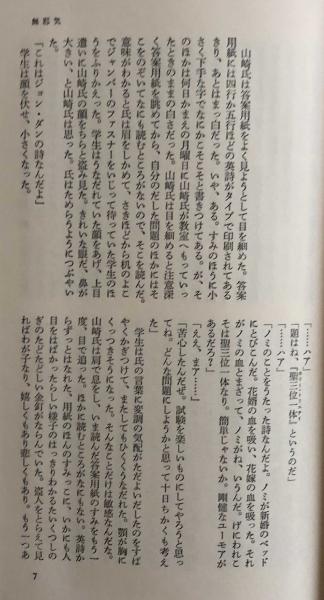 無邪気
山崎氏は答案用紙をよく見ようとして目を細めた。答案
用紙には四行か五行ほどの英詩がタイプで印刷されてある
きり、あとはまっ白だった。いや、ある。すみのほうに小
さく下手な字でなにかこそこそと書きつけてある。が、そ
のほかは何日かまえの月曜日に山崎氏が教室へもっていっ
たときのままの白さだった。山崎氏は目を細めると注意深
く答案用紙を眺めてから、自分のだした問題のほかにはそ
こをのぞいてなにも読むところがないので、そこを読んだ。
意味がわかると氏は眉をしかめて、さきほどから机のよこ
でジャンパーのファスナーをいじって待っていた学生のほ
うをふりかえった。学生はうなだれていた顔をあげ、上目
遣いに山崎氏の顔をちらと盗み見た。きれいな眼だ、鼻が
大きい、と山崎氏は思った。氏はためらうようにつぶやい
た。
「これはジョン・ダンの詩なんだよ」
学生は顔を伏せ、小さくなった。
「……ハア」
「題はね、『聖三位一体』というのだ」
「……ハア」
「ノミのことをうたった詩なんだよ。ノミが新婚のベッド
にとびこんだ。花婿の血を吸い、花嫁の血を吸った。それ
がノミの血とまざって、ノミがね、いうんだ。げにわれこ
そは聖三位一体なり。簡単じゃないか。剛健なユーモアが
あるだろ？」
「ええ、まア……」
「苦心したんだぜ。試験を楽しいものにしてやろうと思っ
てね。どんな問題にしようかと思って十日ちかくも考え
た」
学生は氏の言葉に変調の気配がただよいだしたのをすば
やくかぎつけて、またしてもひくくうなだれた。顎が胸に
くっつきそうになった。そんなことだけは敏感なんだな。
山崎氏は肩で息をし、いま読んだ答案用紙のすみをもう一
度、目で追った。ほかに読むところがなにもない。英詩か
らずっとはなれた、用紙のほんのすみっこに、いかにも人
目をはばかったらしい様子のはっきりわかるたいくつしの
ぎのたどたどしい金釘がならんでいた。盗人をとらえて見
ればわが子なり、嬉しくもあり悲しくもあり。もう一つあ
7